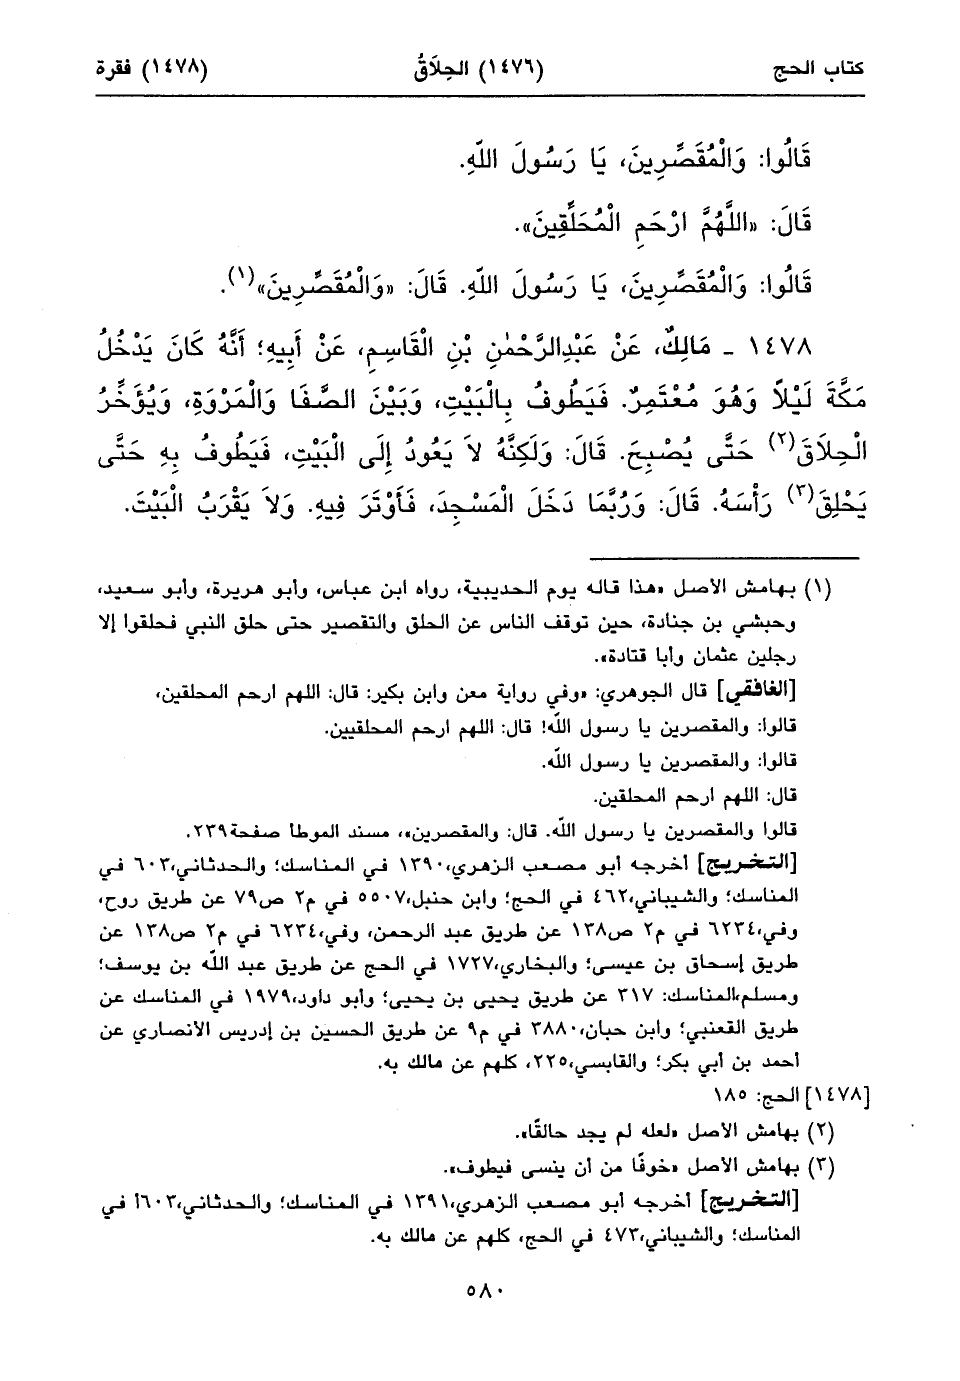 كتاب الحج (١٤٧٦) الحِلاَقُ (١٤٧٨) فقرة
قَالُوا: وَالْمُقَصِّرِينَ، يَا رَسُولَ اللّهِ.
قَالَ: «اللَّهُمَّ ارْحَمِ الْمُحَلِّقِينَ».
قَالُوا: وَالْمُقَصِّرِينَ، يَا رَسُولَ اللّهِ. قَالَ: «وَالْمُقَصِّرِينَ»(١).
١٤٧٨ - مَالِكٌ، عَنْ عَبْدِالرَّحْمٰنِ بْنِ الْقَاسِمِ، عَنْ أَبِيهِ؛ أَنَّهُ كَانَ يَدْخُلُ
مَكَّةَ لَيْلاً وَهُوَ مُعْتَمِرٌ. فَيَطُوفُ بِالْبَيْتِ، وَبَيْنَ الصَّفَا وَالْمَرْوَةِ، وَيُؤَخِّرُ
الْحِلاَقَ(٢) حَتَّى يُصْبِحَ. قَالَ: وَلَكِنَّهُ لاَ يَعُودُ إِلَى الْبَيْتِ، فَيَطُوفُ بِهِ حَتَّى
يَحْلِقَ(٣) رَأْسَهُ. قَالَ: وَرُبَّمَا دَخَلَ الْمَسْجِدَ، فَأَوْتَرَ فِيهِ. وَلاَ يَقْرَبُ الْبَيْتَ.
(١) بهامش الأصل «هذا قاله يوم الحديبية، رواه ابن عباس، وأبو هريرة، وأبو سعيد،
وحبشي بن جنادة، حين توقف الناس عن الحلق والتقصير حتى حلق النبي فحلقوا إلا
رجلين عثمان وأبا قتادة».
[الغافقي] قال الجوهري: «وفي رواية معن وابن بكير: قال: اللهم ارحم المحلقين،
قالوا: والمقصرين يا رسول اللّه! قال: اللهم ارحم المحلقيين.
قالوا: والمقصرين يا رسول اللّه.
قال: اللهم ارحم المحلقين.
قالوا والمقصرين يا رسول اللّه. قال: والمقصرين»، مسند الموطأ صفحة٢٣٩.
[التخريج] أخرجه أبو مصعب الزهري،١٣٩٠ في المناسك؛ والحدثاني،٦٠٣ في
المناسك؛ والشيباني،٤٦٢ في الحج؛ وابن حنبل،٥٥٠٧ في م٢ ص٧٩ عن طريق روح،
وفي،٦٢٣٤ في م٢ ص١٣٨ عن طريق عبد الرحمن، وفي،٦٢٣٤ في م٢ ص١٣٨ عن
طريق إسحاق بن عيسى؛ والبخاري،١٧٢٧ في الحج عن طريق عبد اللّه بن يوسف؛
ومسلم،المناسك: ٣١٧ عن طريق يحيى بن يحيى؛ وأبو داود،١٩٧٩ في المناسك عن
طريق القعنبي؛ وابن حبان،٣٨٨٠ في م٩ عن طريق الحسين بن إدريس الأنصاري عن
أحمد بن أبي بكر؛ والقابسي،٢٢٥، كلهم عن مالك به.
[١٤٧٨] الحج: ١٨٥
(٢) بهامش الأصل «لعله لم يجد حالقًا».
(٣) بهامش الأصل «خوفًا من أن ينسى فيطوف».
[التخريج] أخرجه أبو مصعب الزهري،١٣٩١ في المناسك؛ والحدثاني،٦٠٣أ في
المناسك؛ والشيباني،٤٧٣ في الحج، كلهم عن مالك به.
٥٨٠